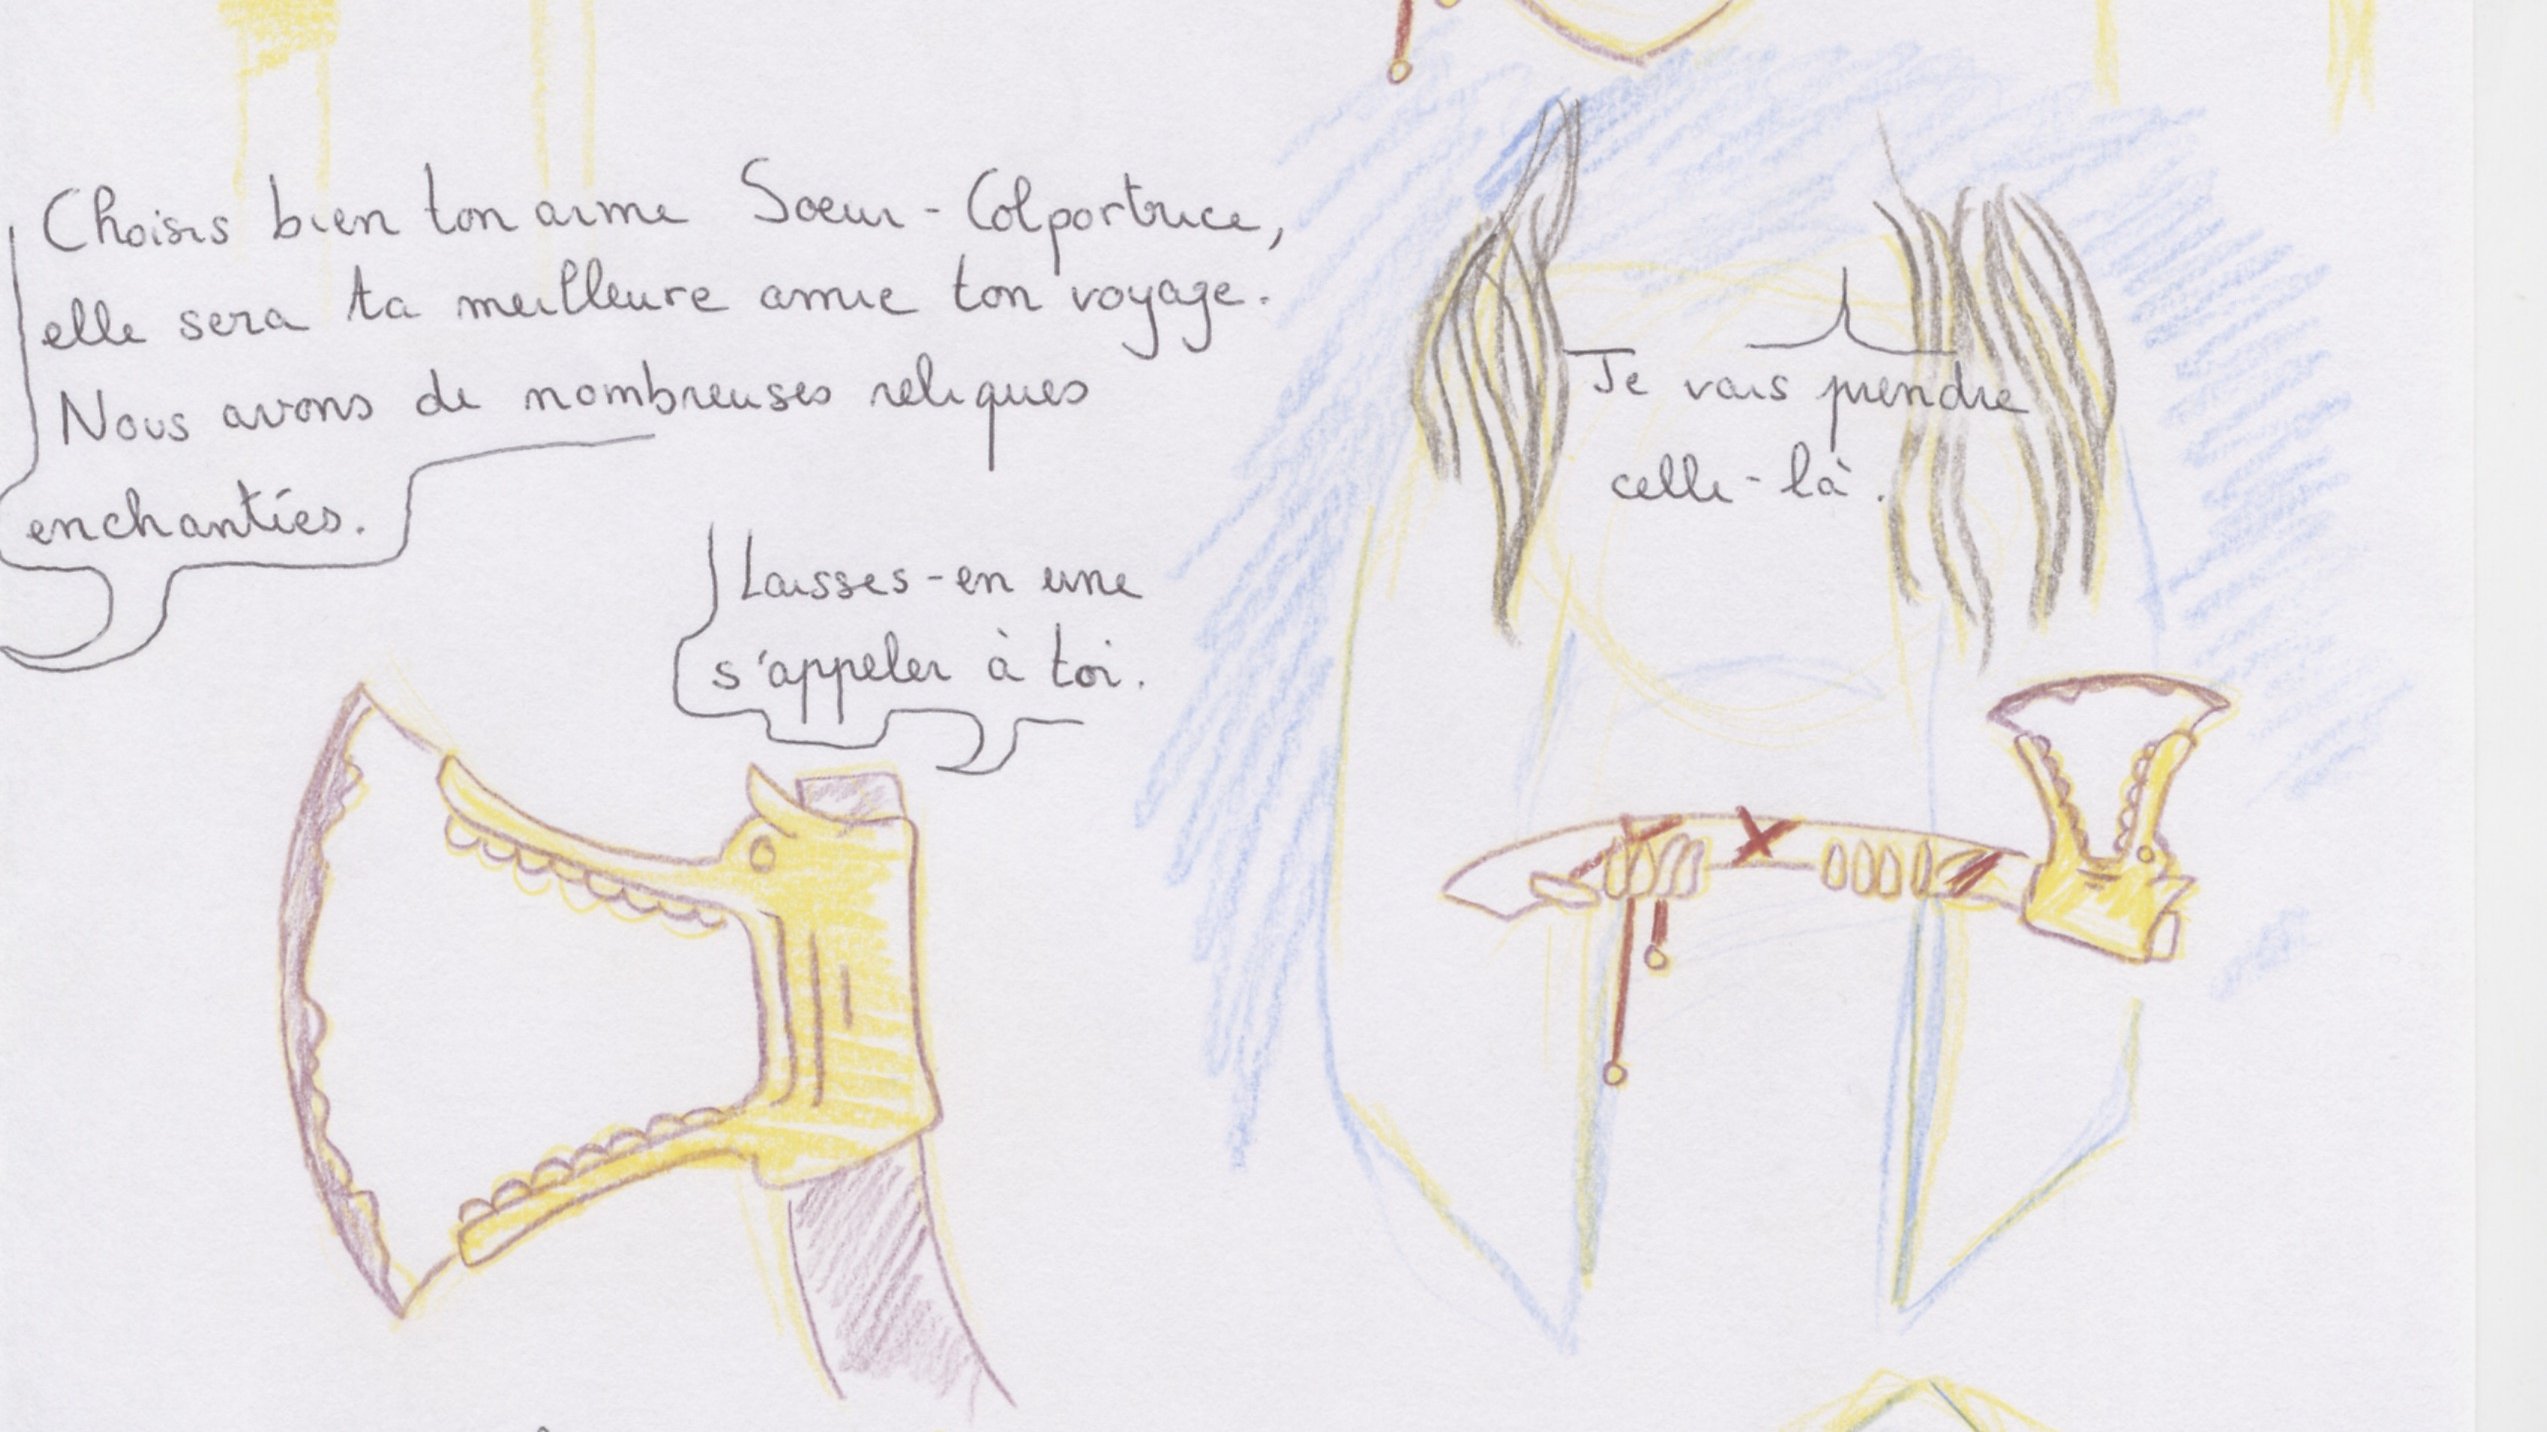 Choisis bien ton arme Soeur-Colportrice,
elle sera ta meilleure amie ton voyage.
Nous avons de nombreuses reliques
enchantées.
Laisses-en une
s'appeler à toi.
Je vais prendre
celle-là.